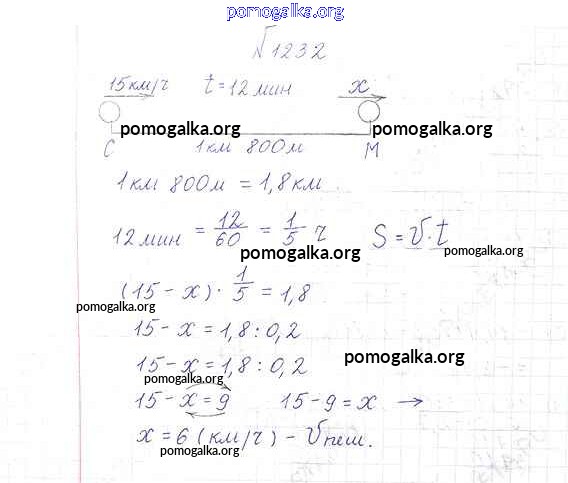 pomogalka.org
№1232
15км/ч t=12 мин x
pomogalka.org pomogalka.org
С 1км 800м М
1км 800м = 1,8км.
12 мин = 12/60 = 1/5 ч S = v·t
pomogalka.org pomogalka.org
(15-x)·1/5 = 1,8
pomogalka.org
15-x = 1,8:0,2
15-x = 1,8:0,2 pomogalka.org
pomogalka.org
15-x = 9 15-9=x →
pomogalka.org
x = 6 (км/ч) - vпеш.
pomogalka.org